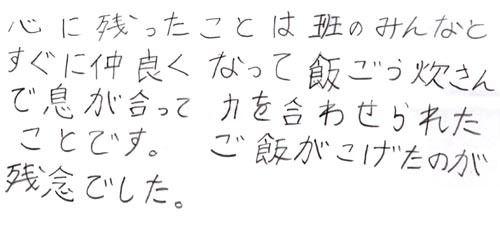 心に残ったことは班のみんなと
すぐに仲良くなって飯ごう炊さん
で息が合って力を合わせられた
ことです。ご飯がこげたのが
残念でした。